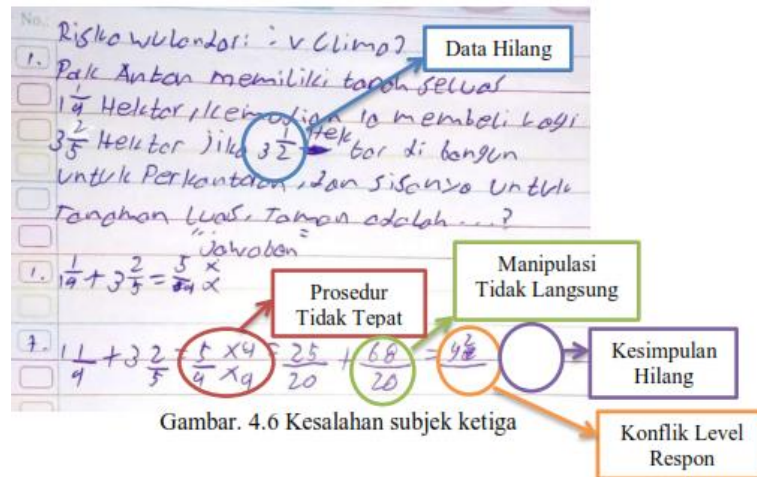 No.:
Riska wulandari : v (lima)
1. Pak Anton memiliki tanah seluas
1 1/4 Hektar, kemudian ia membeli lagi
3 2/5 Hektar jika 3 1/2 Hektar di bangun
untuk Perkantoran, dan sisanya untuk
Tanaman Luas, Taman adalah ...?
"Jawaban"
1. 1 1/4 + 3 2/5 = 5/4 x x
7. 1 1/4 + 3 2/5 = 5/4 x4 x4 = 25/20 + 68/20 =
Data Hilang
Prosedur
Tidak Tepat
Manipulasi
Tidak Langsung
Kesimpulan
Hilang
Konflik Level
Respon
Gambar. 4.6 Kesalahan subjek ketiga